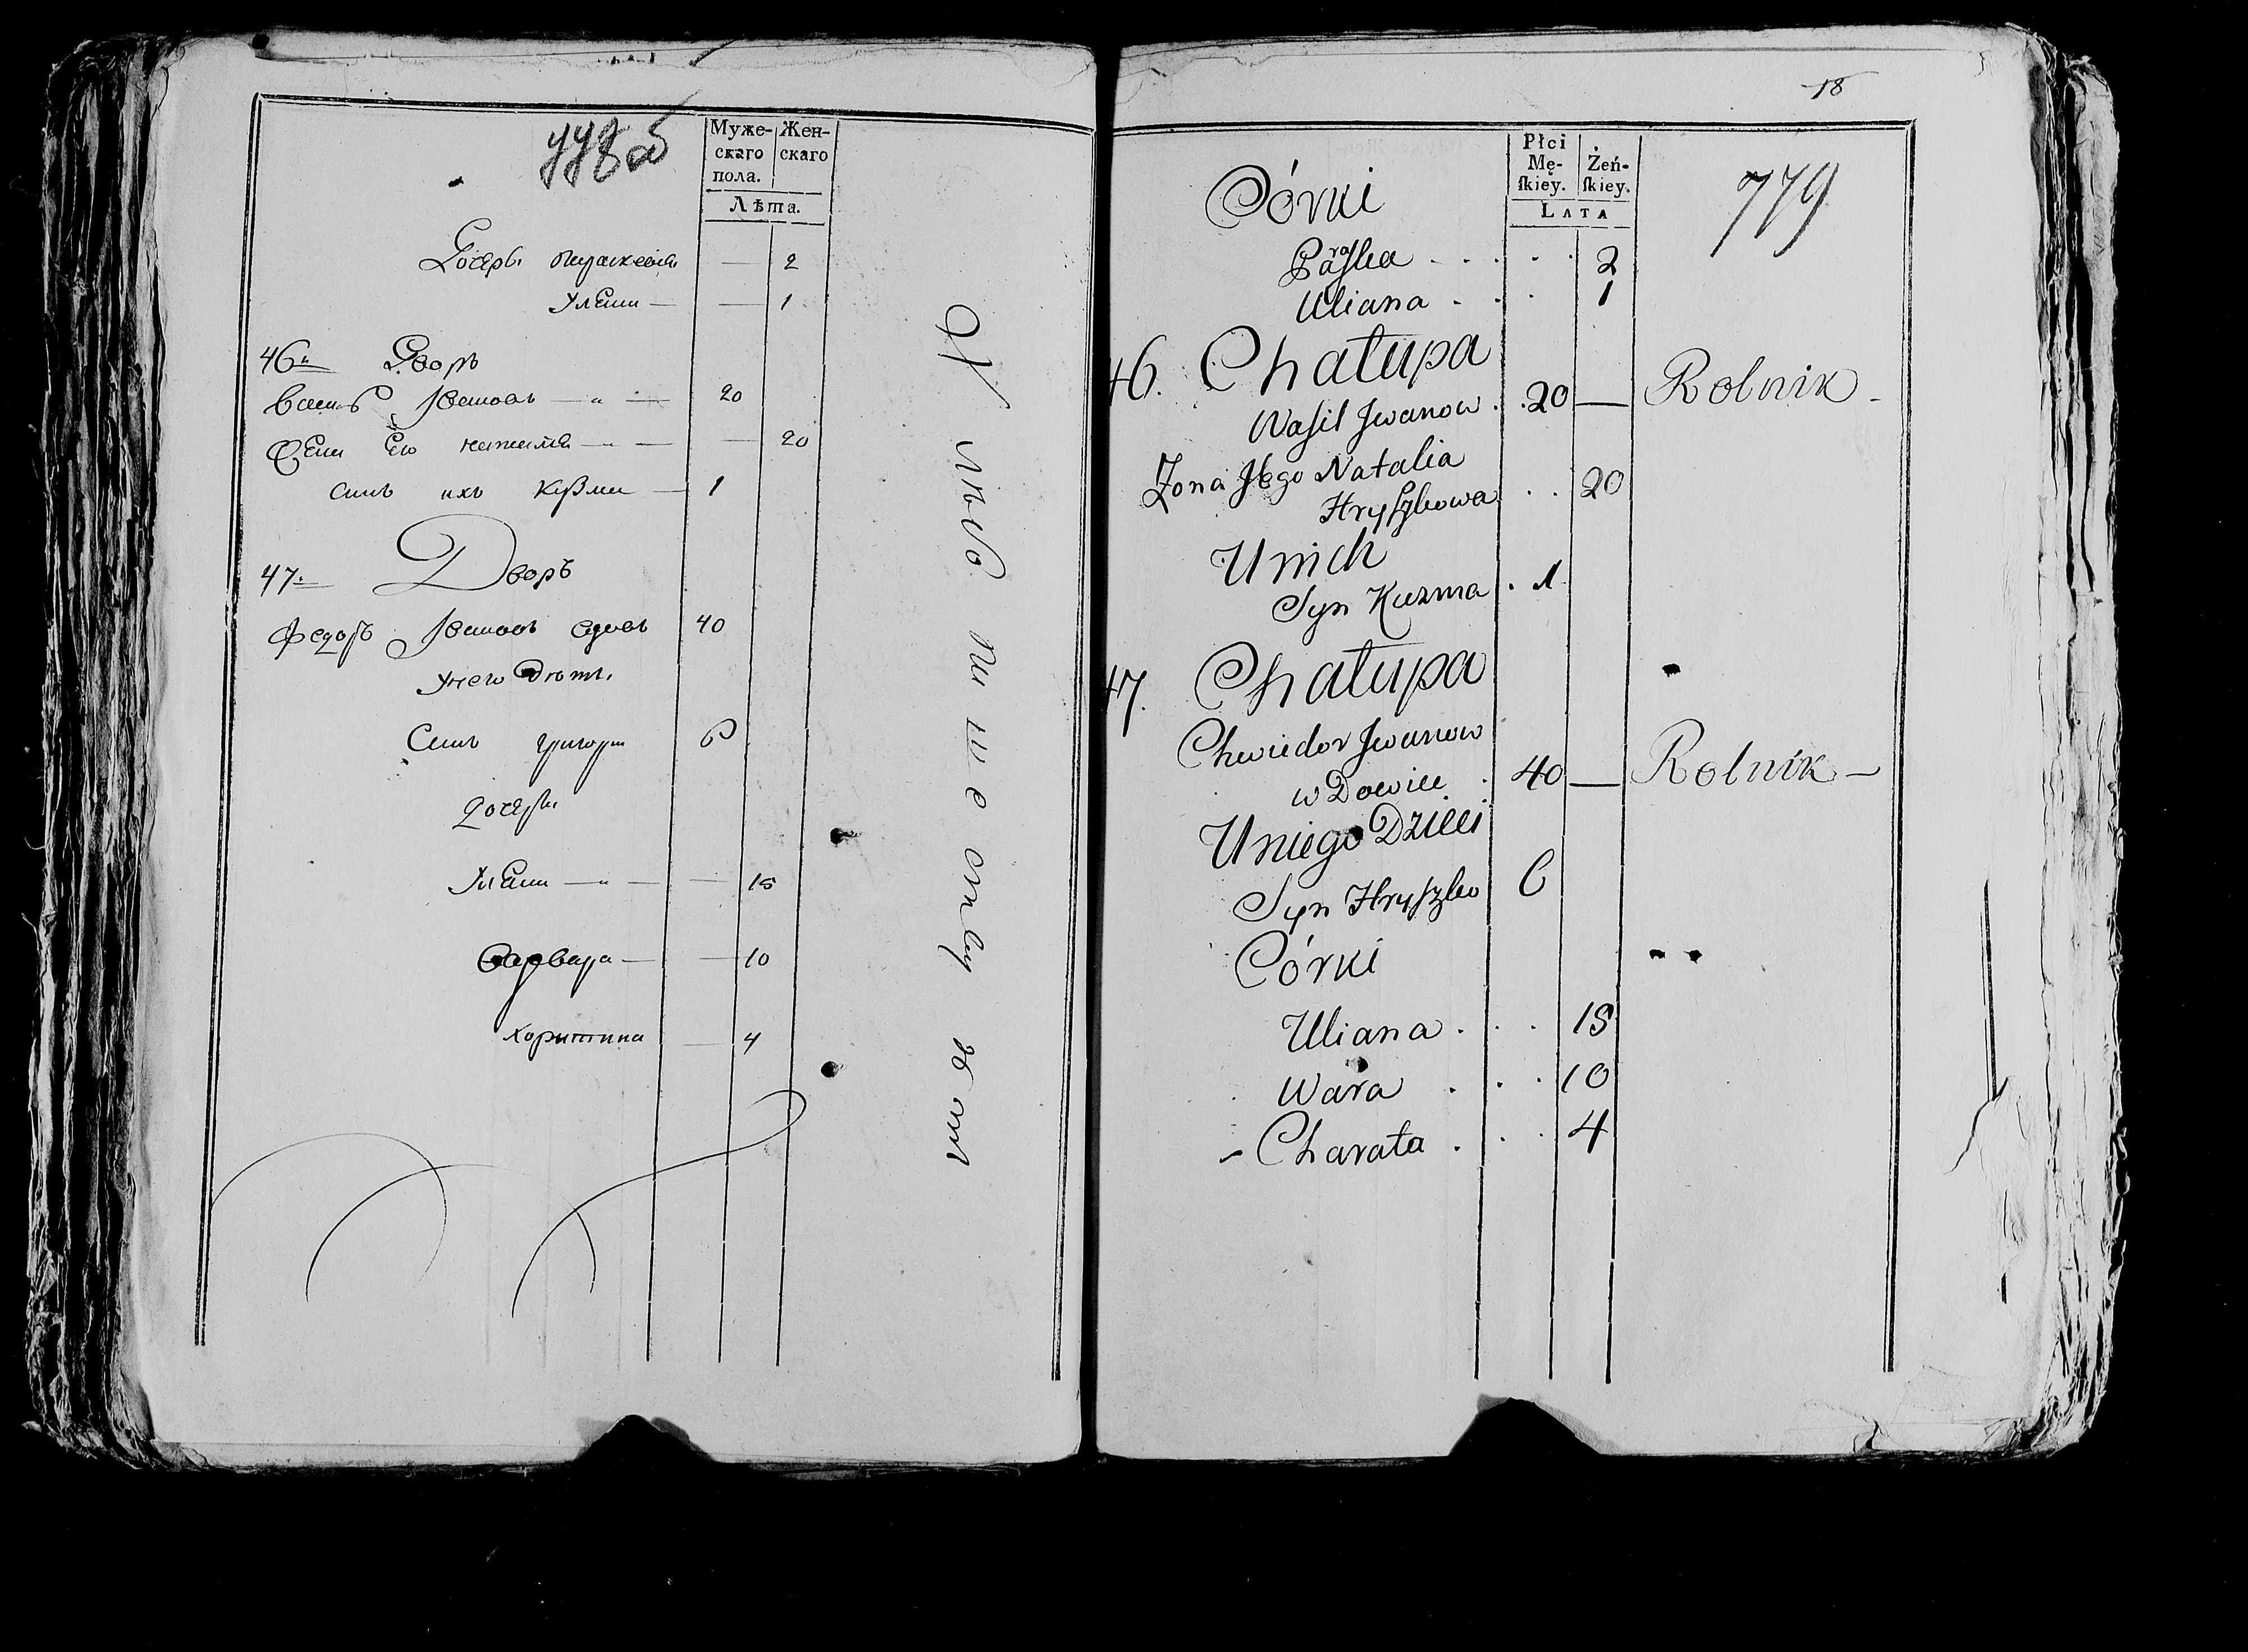 778 об
Муже-
скаго
пола.
Жен-
скаго
Лѣта.
Дочери Параскевия — 2
Улѣана — — 1
46 Дворъ
Василь Ивановъ — 20
Жена Его Наталия — — 20
Сынъ ихъ Кузма — 1
47 Дворъ
Федоръ Ивановъ вдовъ 40
Унего дѣти
Сынъ Григори 6
дочери
Улѣана — — 15
Варвара — — 10
Харитина — 4
18
Płci
Mę-
ſkiey.
Żeń-
ſkiey.
LATA
779
Córki
Paraſka . . . . . 2
Uliana . . . 1
46. Chałupa
Waſil Jwanow . . 20 — Rolnik -
Zona Jego Natalia
Hryſzkowa . . 20
U nich
Syn Kuzma . 1
47. Chałupa
Chwiedor Jwanow
wDowiec . 40 — Rolnik -
Uniego Dzieci
Syn Hryſzko 6
Córki
Uliana . . . 15
Wara . . . 10
- Charata . . . 4